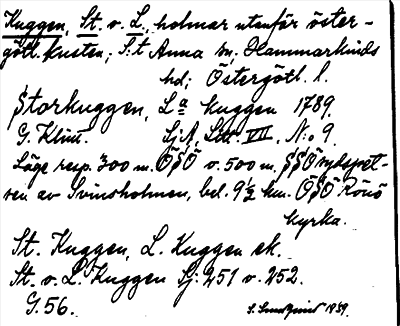 Kuggen, St. o. L., holmar utanför öster-
götl. kusten; S:t Anna sn, Hammarkinds
hd; Östergötl. l.
Storkuggen, La kuggen 1789.
G. Klint. Sj. A, Litt. VII, No 9.
Läge resp. 300 m. ÖSÖ o. 500 m. SSÖ
av Svinsholmen, bel. 9 1/2 km. ÖSÖ Rönö
kyrka.
St. Kuggen, L. Kuggen ek.
St. o. L. Kuggen Sj. 251 o. 252.
G. 56. S. Lundqvist 1939.